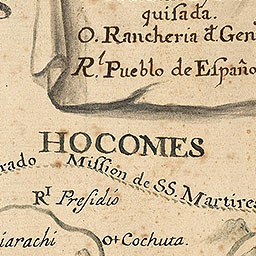 quisada.
O. Rancheria đ. Gen
Rl Pueblo de Españo
HOCOMES
rado Mission de SS. Martires
RI Presidio
iarachi O+ Cochuta.